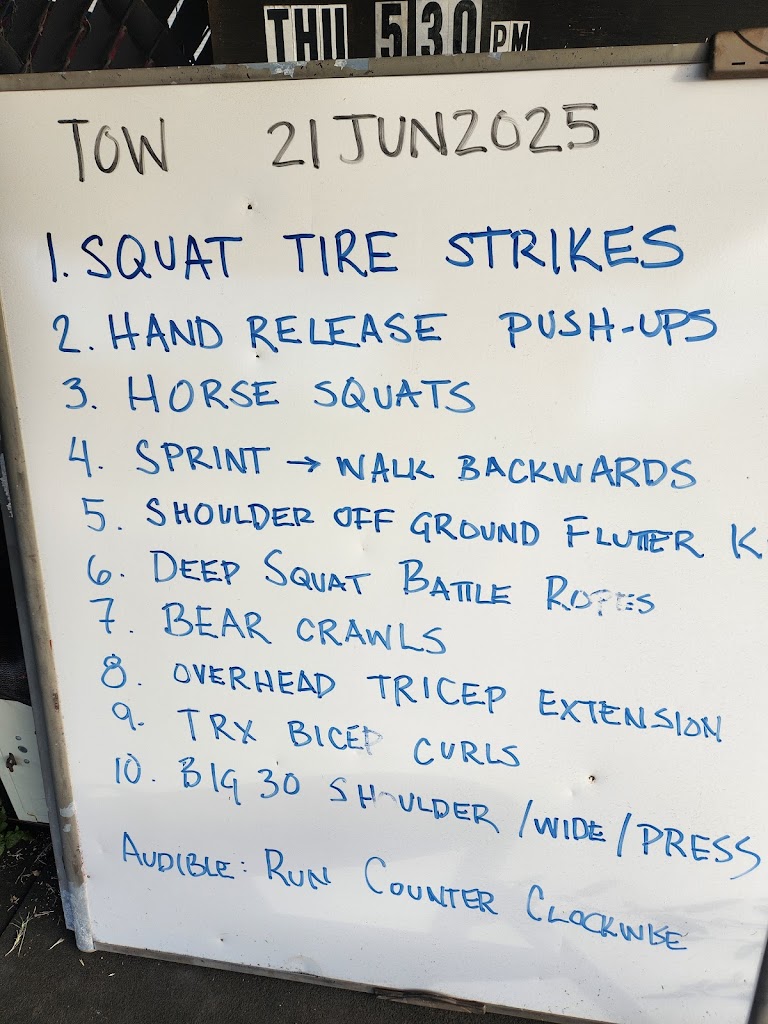 THU 530 PM
TOW 21 JUN 2025
1. SQUAT TIRE STRIKES
2. HAND RELEASE PUSH-UPS
3. HORSE SQUATS
4. SPRINT → WALK BACKWARDS
5. SHOULDER OFF GROUND FLUTTER K
6. DEEP SQUAT BATTLE ROPES
7. BEAR CRAWLS
8. OVERHEAD TRICEP EXTENSION
9. TRX BICEP CURLS
10. BIG 30 SHOULDER / WIDE / PRESS
AUDIBLE: RUN COUNTER CLOCKWISE